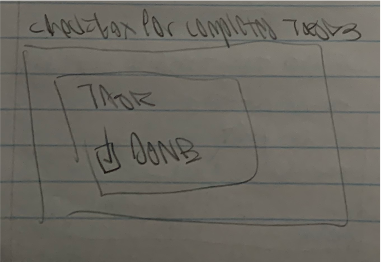 checkbox for completed TASKS
TASK
DONE